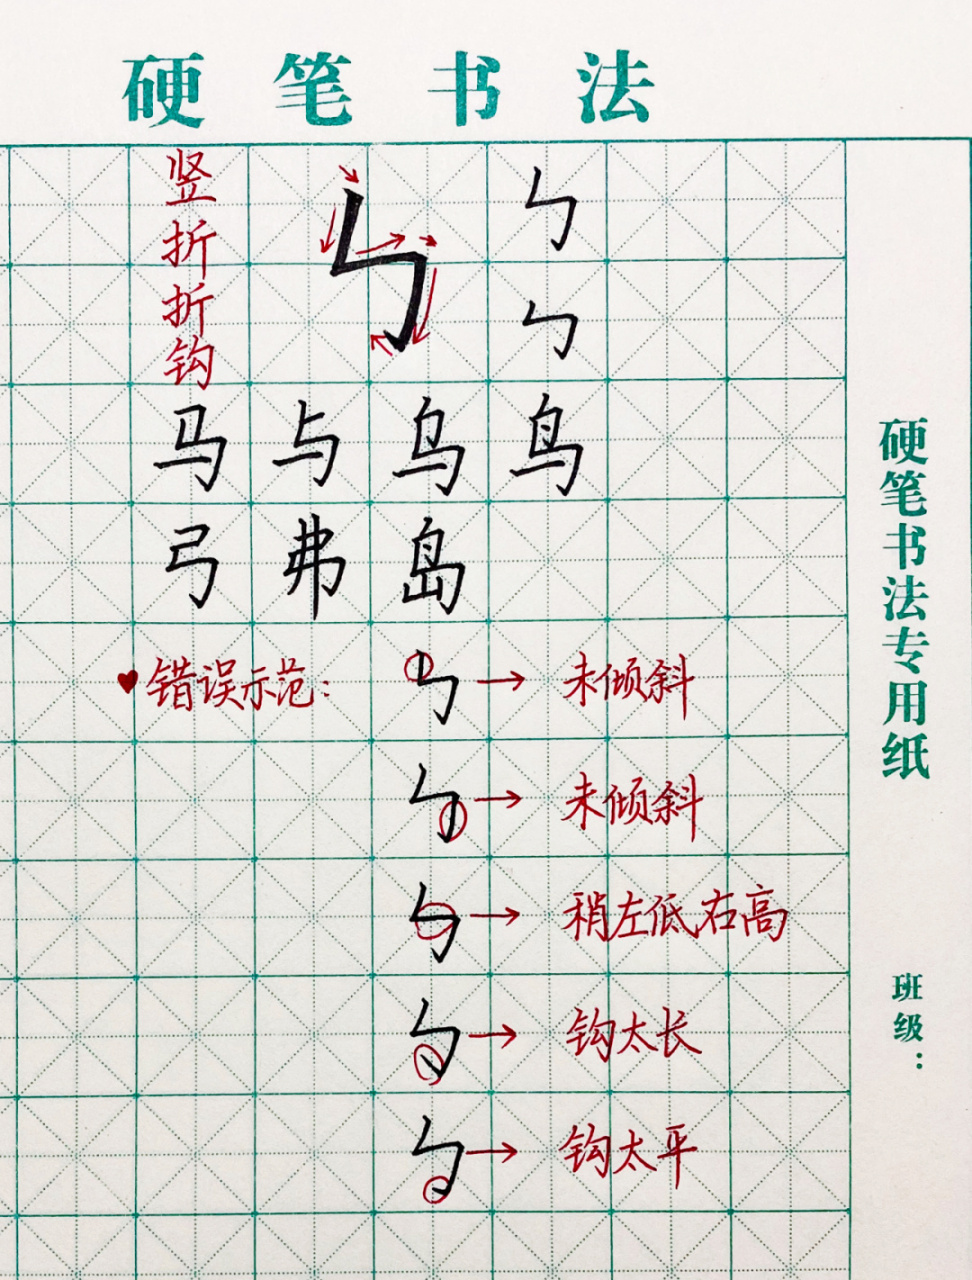 硬笔书法
竖折折钩
ㄣ
ㄣ
ㄣ
马与乌鸟
弓弗岛
♥错误示范：
ㄣ→未倾斜
ㄣ→未倾斜
ㄣ→稍左低右高
ㄣ→钩太长
ㄣ→钩太平
硬笔书法专用纸
班级：